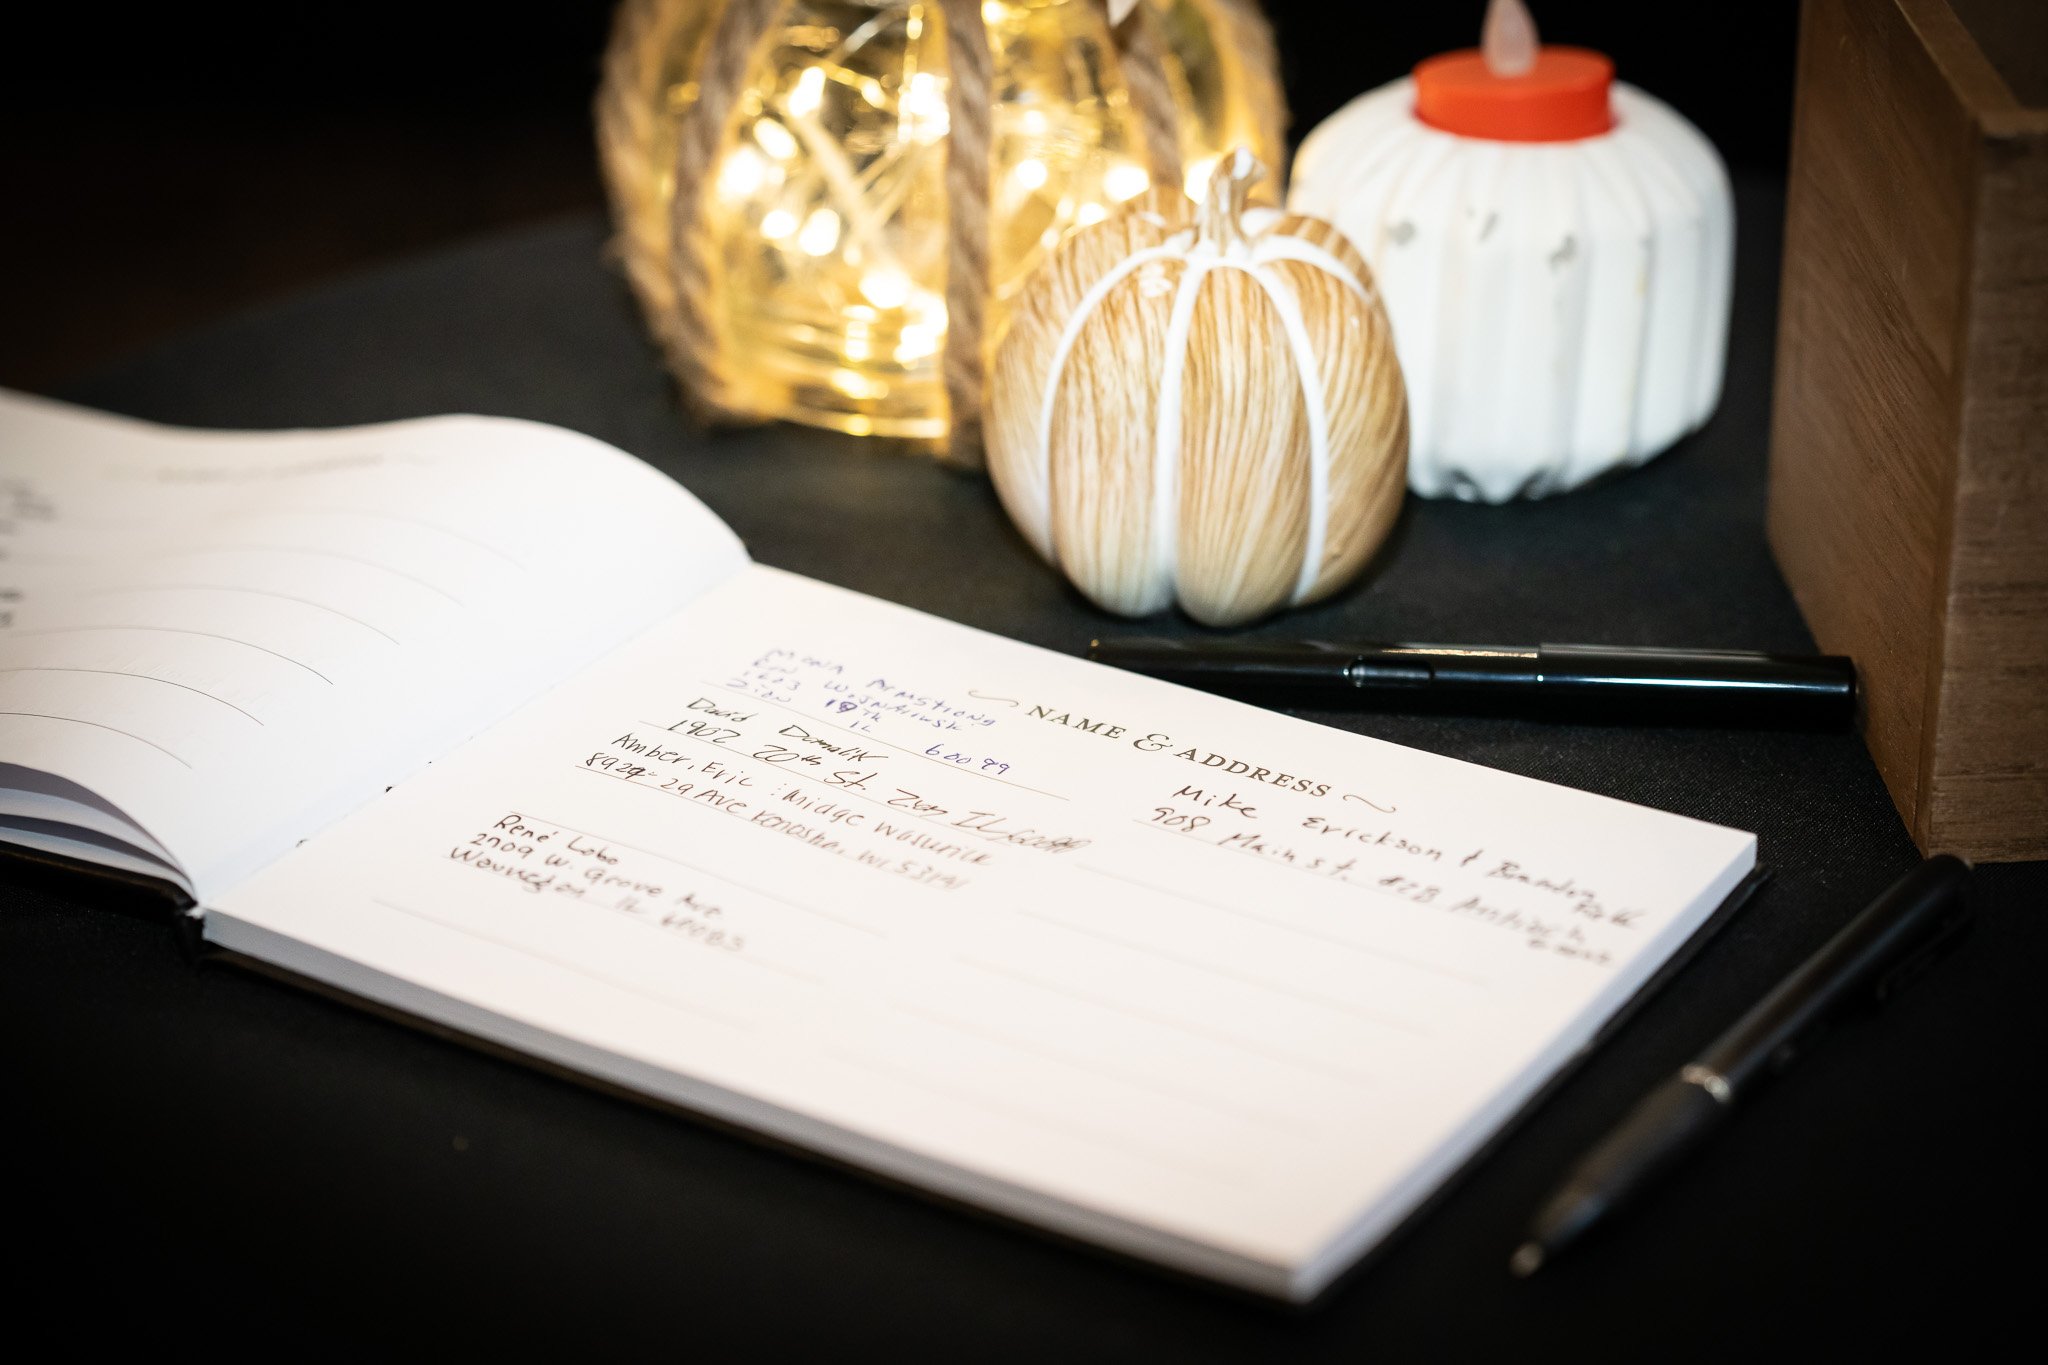 NAME & ADDRESS
MONA ARMSTRONG
1603 19th
ZION IL 60099
David Domalik
1902 20th St. Zion IL 60099
Amber, Eric : Midge Wasurick
8929- 29 Ave Kenosha, WI 53141
René Lobo
2709 W. Grove Ave
IL 60085
Mike Erickson &
908 Main st. #2B Antioch